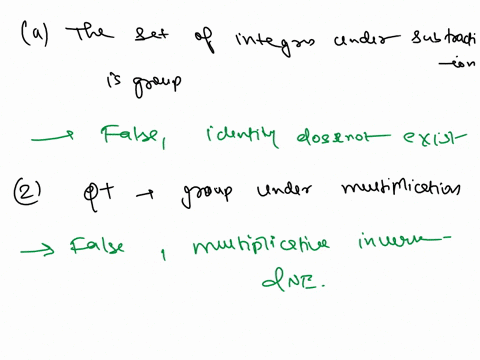 (a) The set of integers under subtracti
-ion
is group
→ False, identity doesnot exist
(2) Q+ → group under multiplication
→ False, multiplicative inverse
dNE.